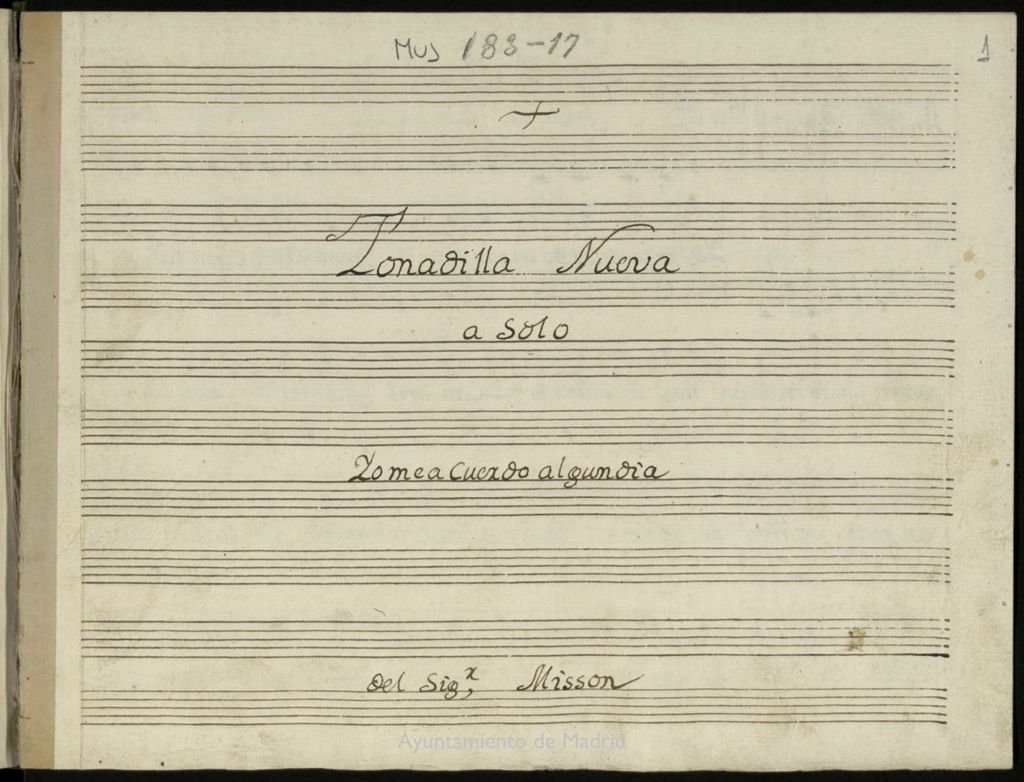 Mus 183-17
1
Tonadilla Nueva
a Solo
Yo me a Cuerdo algun dia
del Sig.r Misson
Ayuntamiento de Madrid